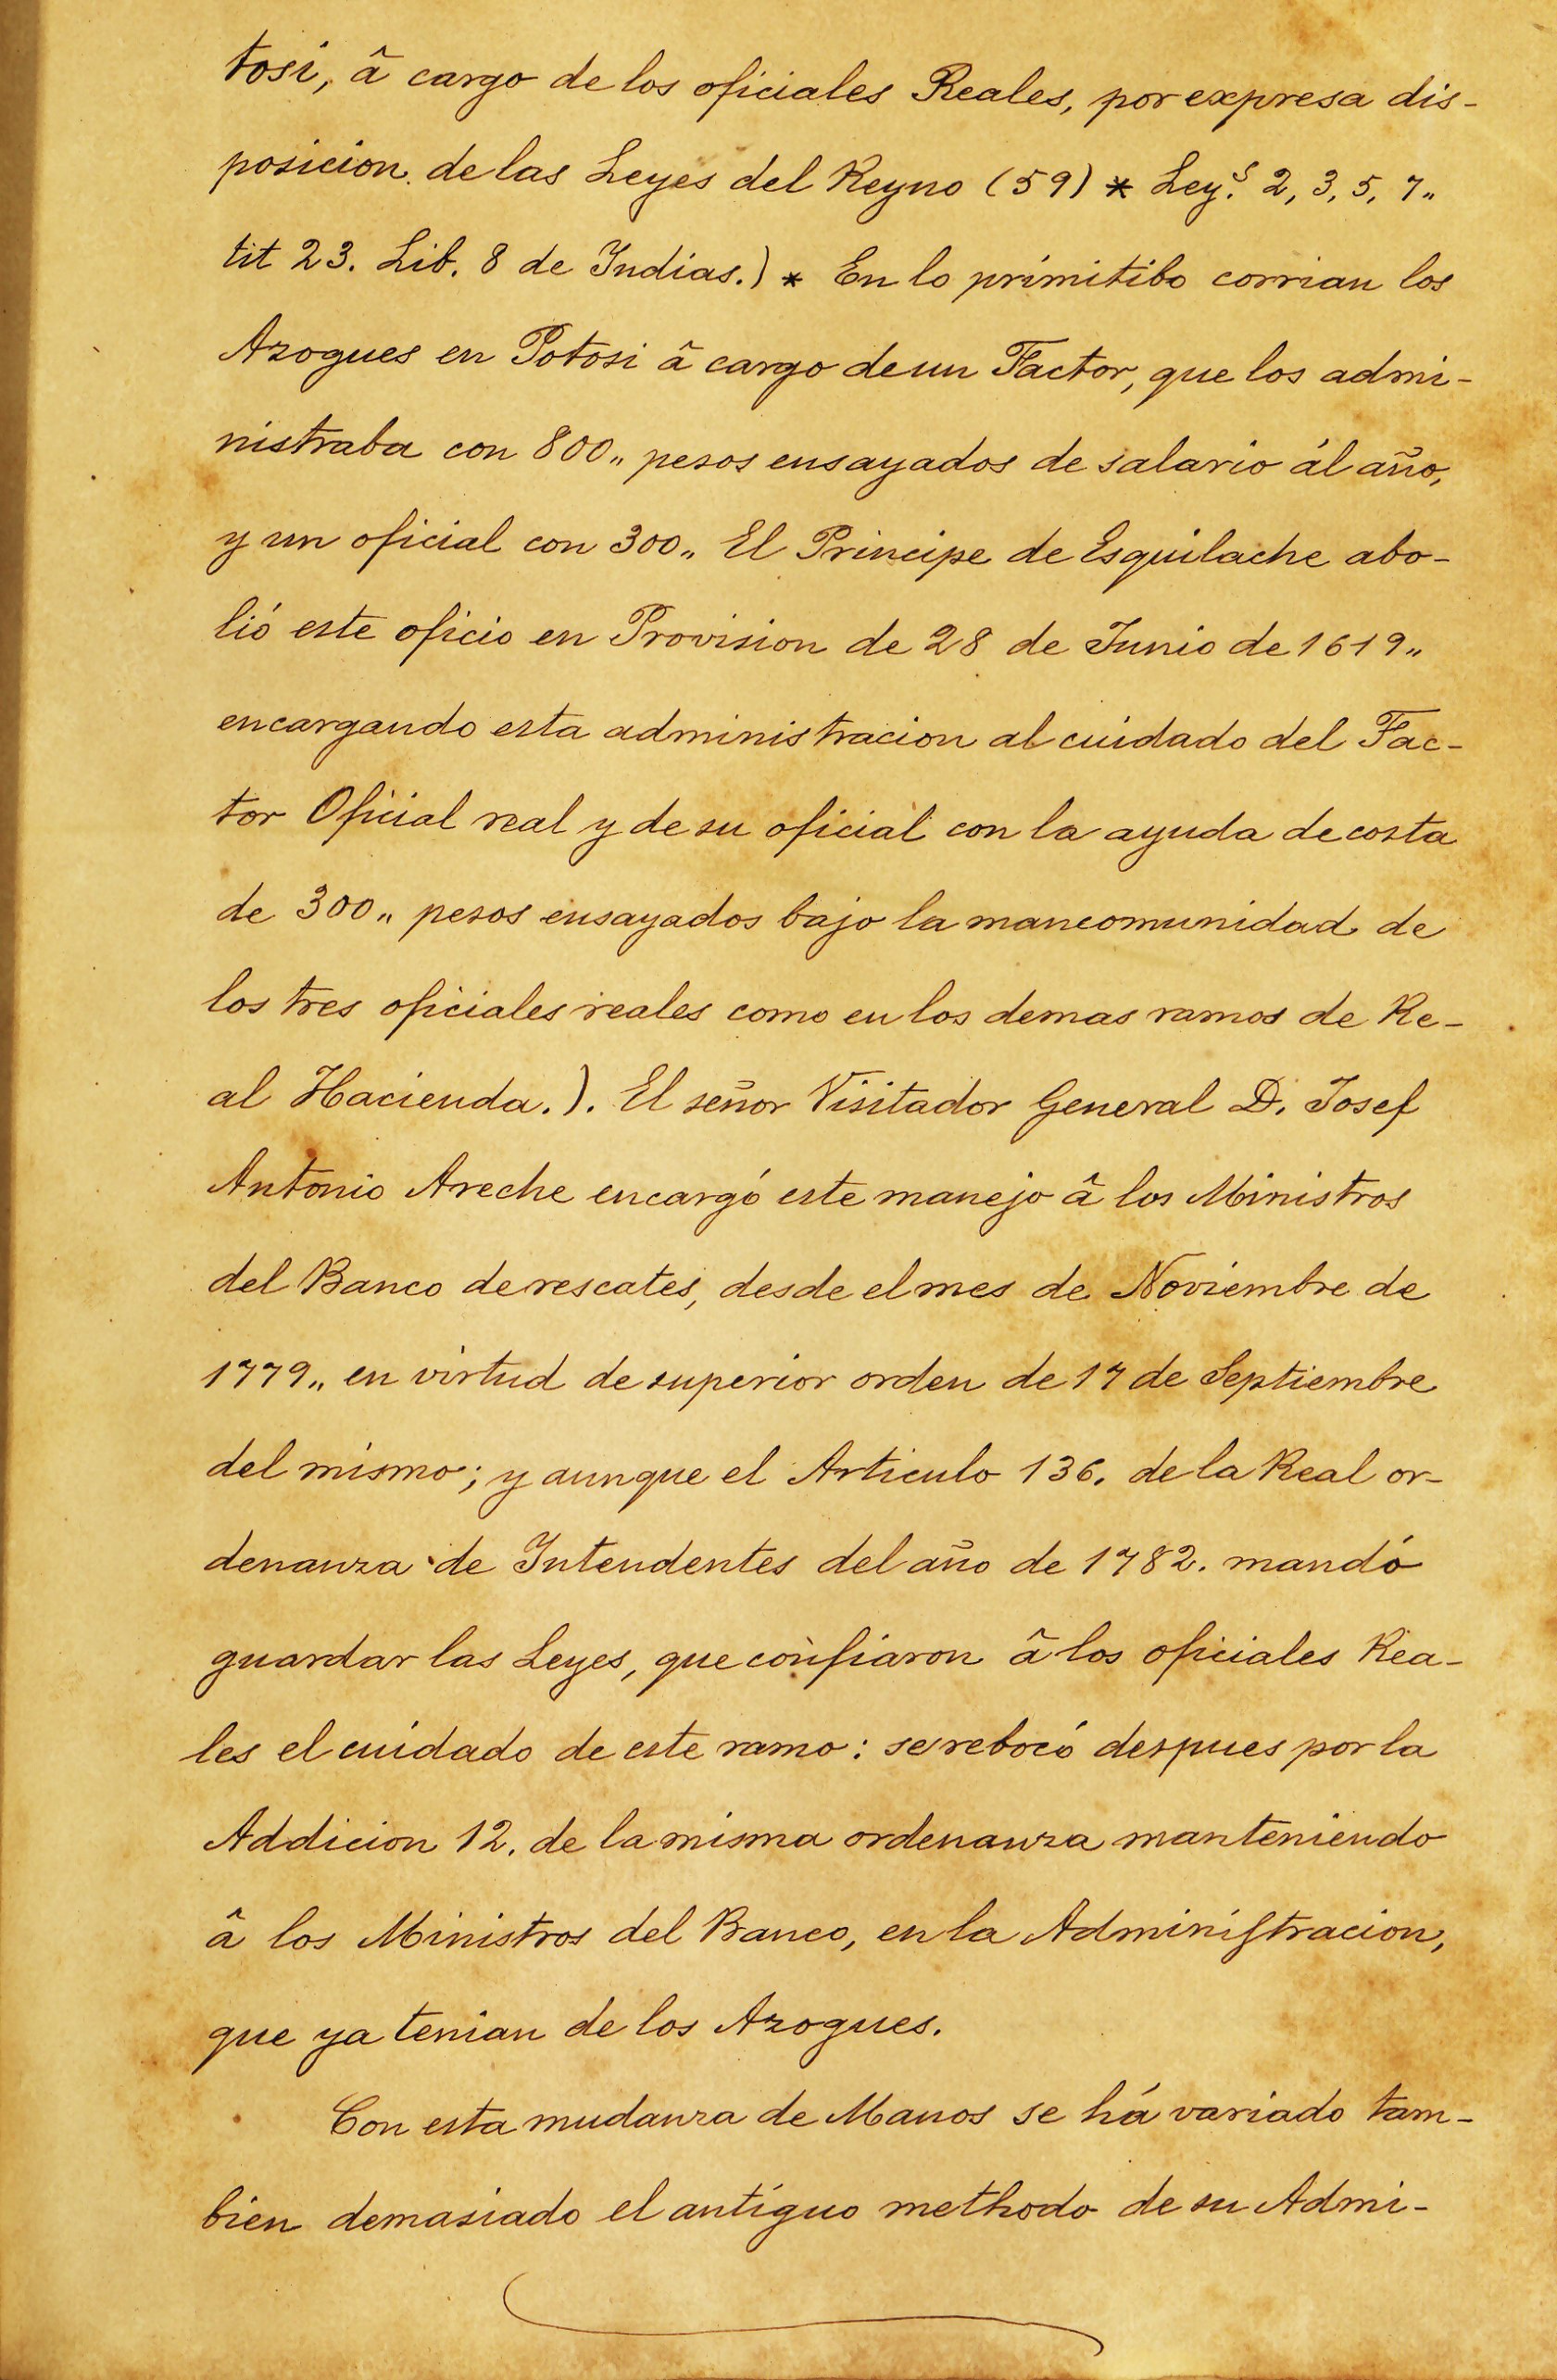 tosi, â cargo de los oficiales Reales, por expresa dis-
posicion de las Leyes del Reyno (59) * Ley.s 2, 3, 5, 7„
tit 23. Lib. 8 de Indias.) * En lo primitibo corrian los
Azogues en Potosi â cargo de un Factor, que los admi-
nistraba con 800„ pesos ensayados de salario ál año,
y un oficial con 300„ El Principe de Esquilache abo-
lió este oficio en Provision de 28 de Junio de 1619„
encargando esta administracion al cuidado del Fac-
tor Oficial real y de su oficial con la ayuda de costa
de 300„ pesos ensayados bajo la mancomunidad de
los tres oficiales reales como en los demas ramos de Re-
al Hacienda.). El señor Visitador General D. Josef
Antonio Areche encargó este manejo â los Ministros
del Banco de rescates, desde el mes de Noviembre de
1779„ en virtud de superior orden de 17 de Septiembre
del mismo; y aunque el Articulo 136. de la Real or-
denanza de Intendentes del año de 1782. mandó
guardar las Leyes, que confiaron â los oficiales Rea-
les el cuidado de este ramo: se rebocó despues por la
Addicion 12. de la misma ordenanza manteniendo
â los Ministros del Banco, en la Adminiſtracion,
que ya tenian de los Azogues.
Con esta mudanza de Manos se há variado tam-
bien demasiado el antiguo methodo de su Admi-